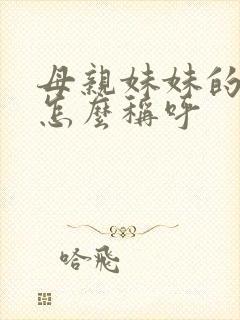 母親妹妹的
怎麼稱呼
哈飛